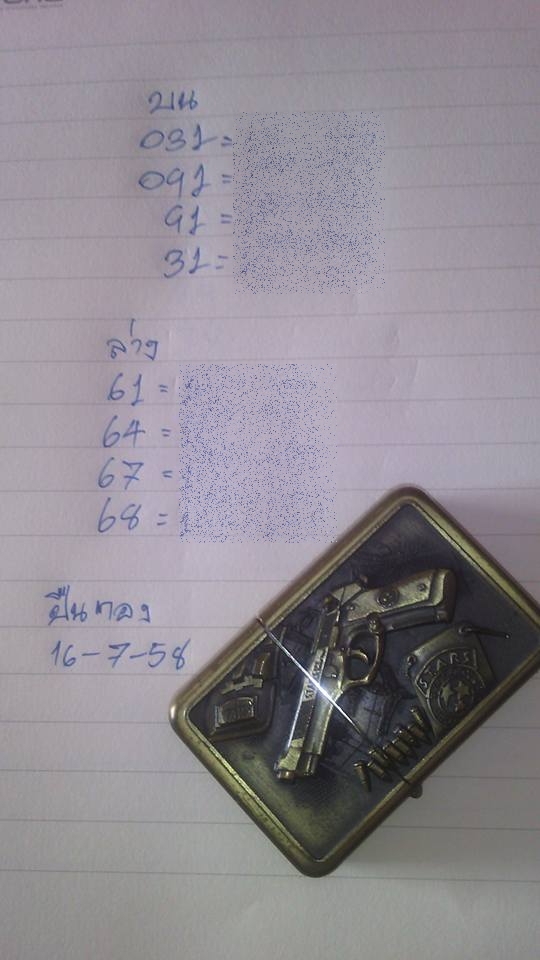 บน
031=
091=
91=
31=
ล่าง
61=
64=
67=
68=
ปืนทอง
16-7-58
S.T.A.R.S